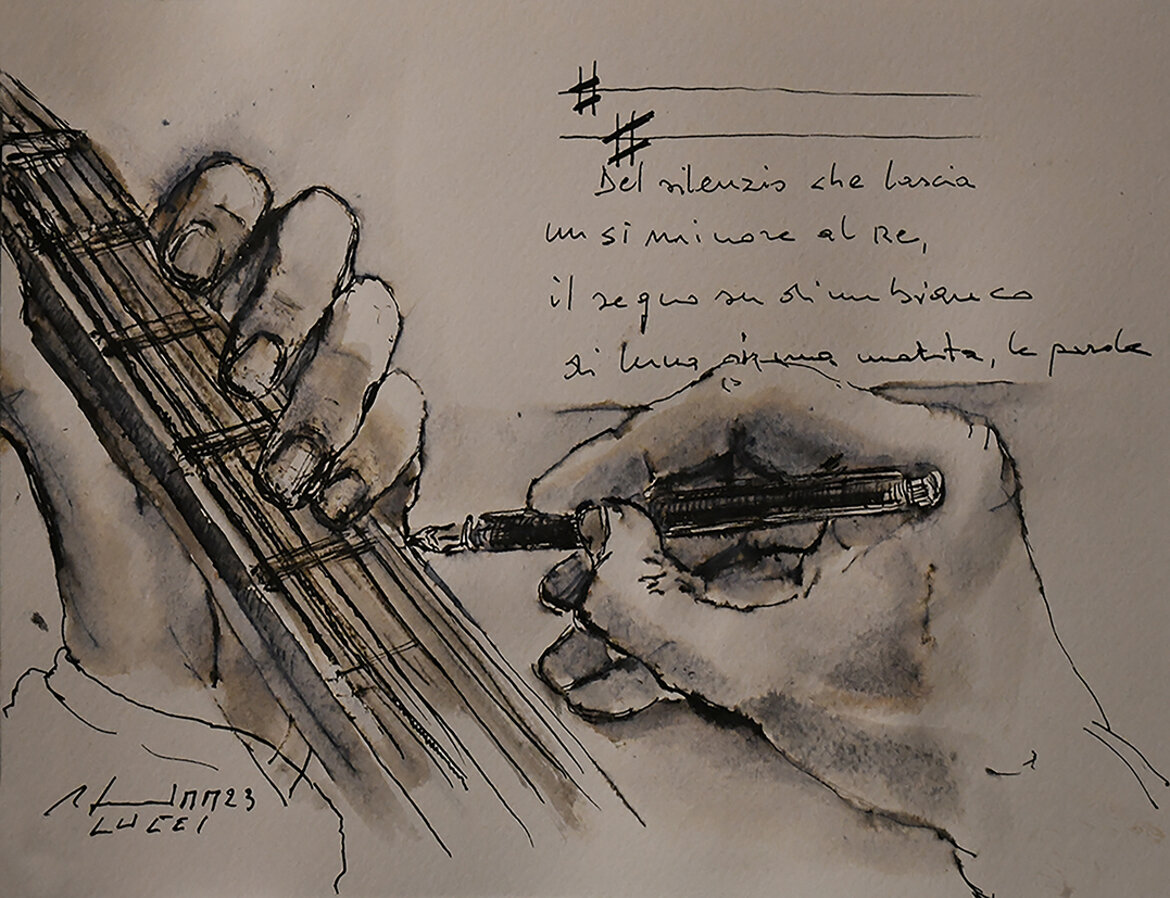 Del silenzio che lascia
un si minore al Re,
il segno su di un bianco
di luna matita, le parole
23
LUCCI